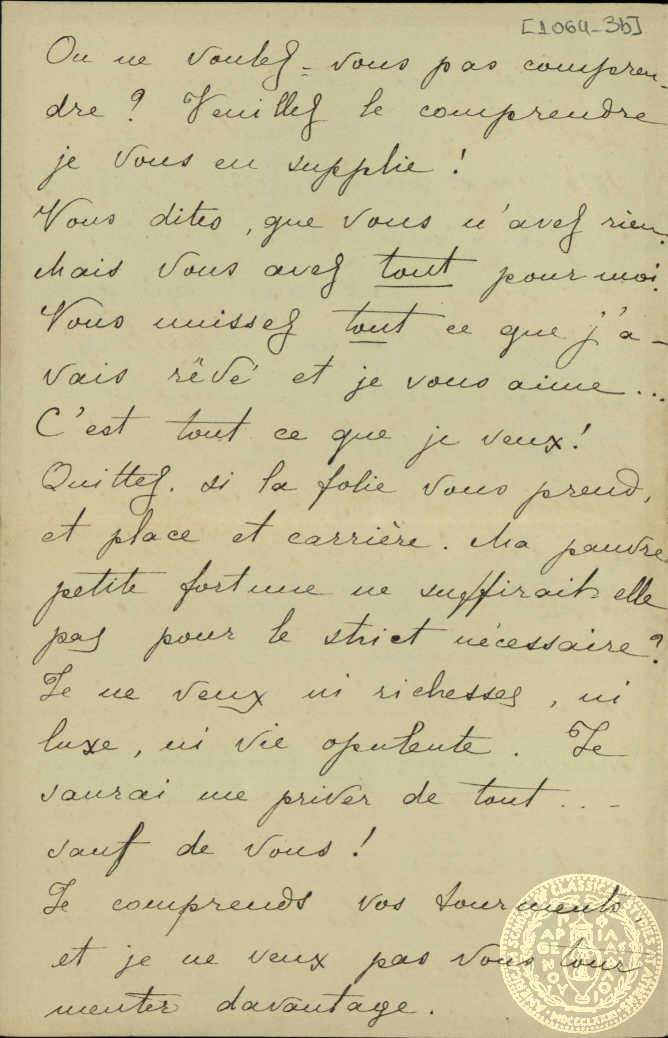 [1064-3b]
Ou ne voulez-vous pas compren-
dre ? Veuillez le comprendre
je vous en supplie !
Vous dites, que vous n'avez rien.
Mais vous avez tout pour moi.
Vous unissez tout ce que j'a-
vais rêvé et je vous aime...
C'est tout ce que je veux !
Quittez. si la folie vous prend,
et place et carrière. Ma pauvre
petite fortune ne suffirait elle
pas pour le strict nécessaire ?
Je ne veux ni richesses, ni
luxe, ni vie opulente. Je
saurai me priver de tout...
sauf de vous !
Je comprends vos tourments,
et je ne veux pas vous tour
menter davantage.